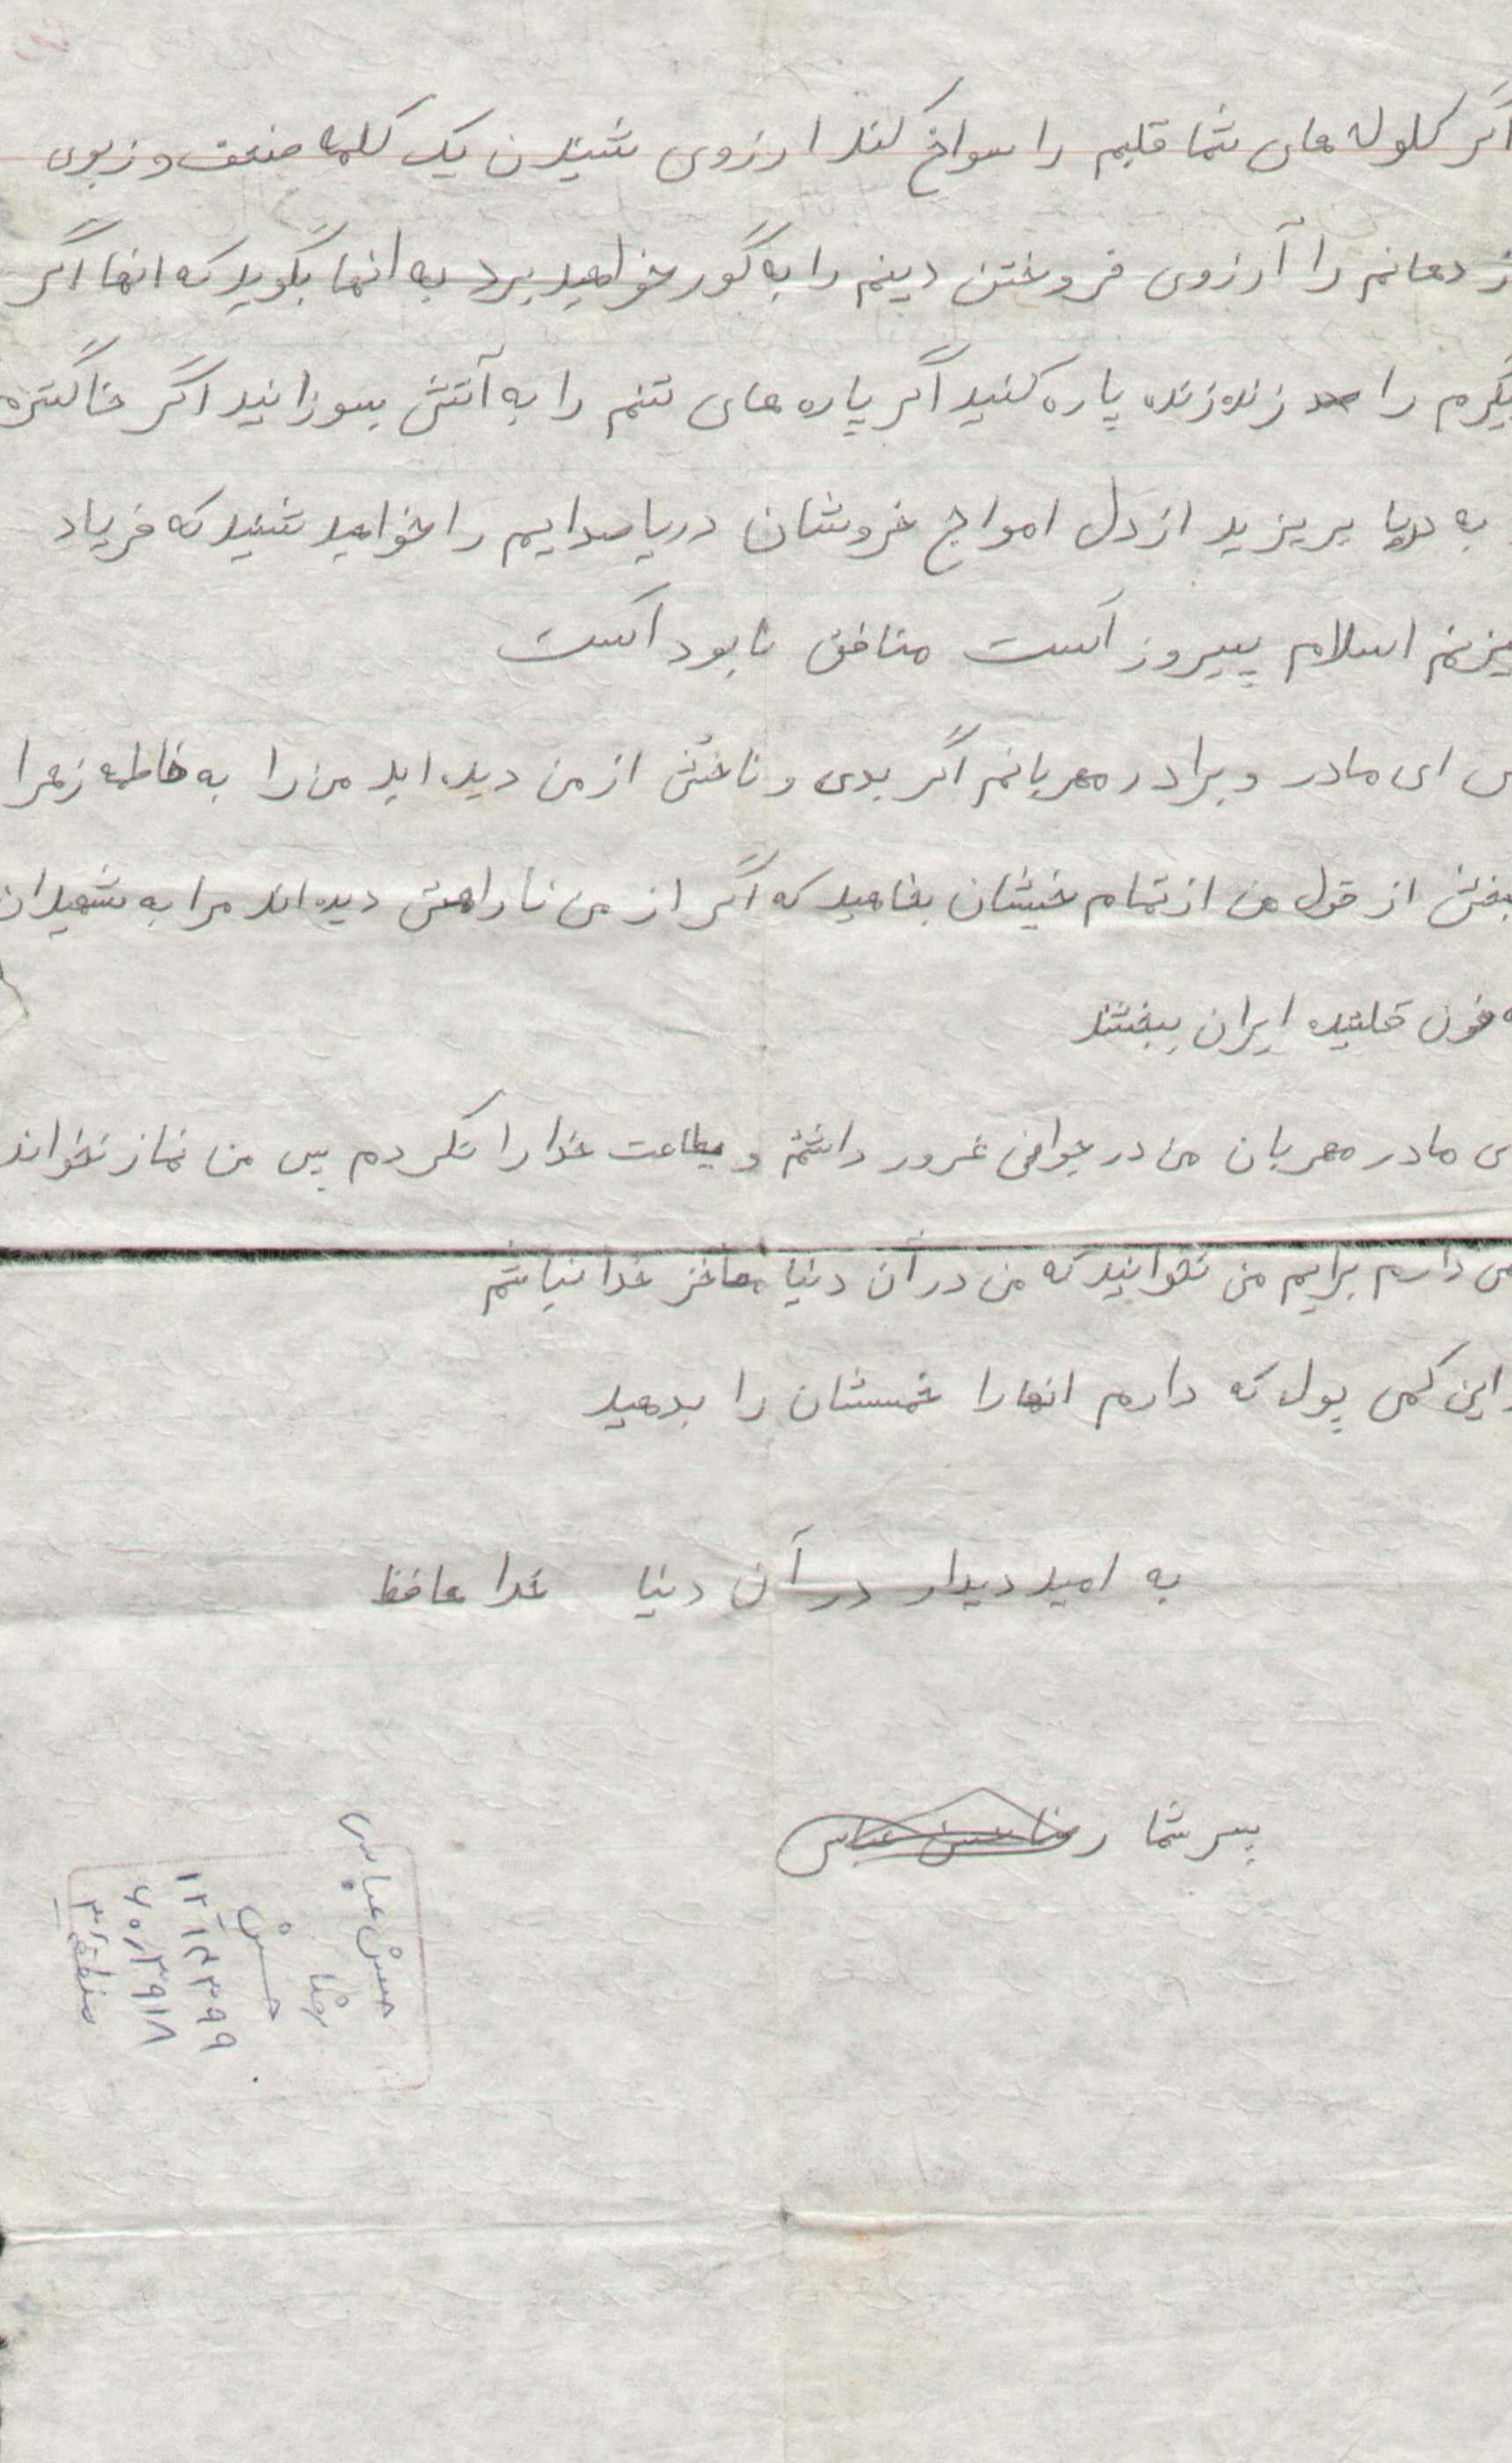 اگر گلوله های شما قلبم را سواخ کند ارزوی شنیدن یک کلمه ضعف و زبوی
ز دهانم را آرزوی فروختن دینم را به گور خواهید برد به انها بگوید که انها اگر
یکرم را زنده زنده پاره کنید اگر پاره های تنم را به آتش بسوزانید اگر خاگستره
به دریا بریزید از دل امواج خروشان دریا صدایم را خواهید شنید که فریاد
میزنم اسلام پییروز آست منافق نابود آست
س ای مادر و برادر مهربانم اگر بدی و ناخشی از من دیده اید من را به فاطمه زهرا
ببخش از قول من از تمام خیشان بخاهید که اگر از من ناراهتی دیده اند مرا به شهیدان
ه خون قلتیده ایران ببخشند
ی مادر مهربان من در جوانی غرور داشتم و یطاعت خدا را نکردم پس من نماز نخواند
می دارم برایم من بخوانید که من در آن دنیا خدا نباشم
این کمی پول که دارم انها را خمسشان را بدهید
به امید دیدار در آن دنیا خدا حافظ
پسر شما رضا حسن عباس
حسن عباس
رضا
حسن
۶۰/۳۹۱۸
منطقه ۳